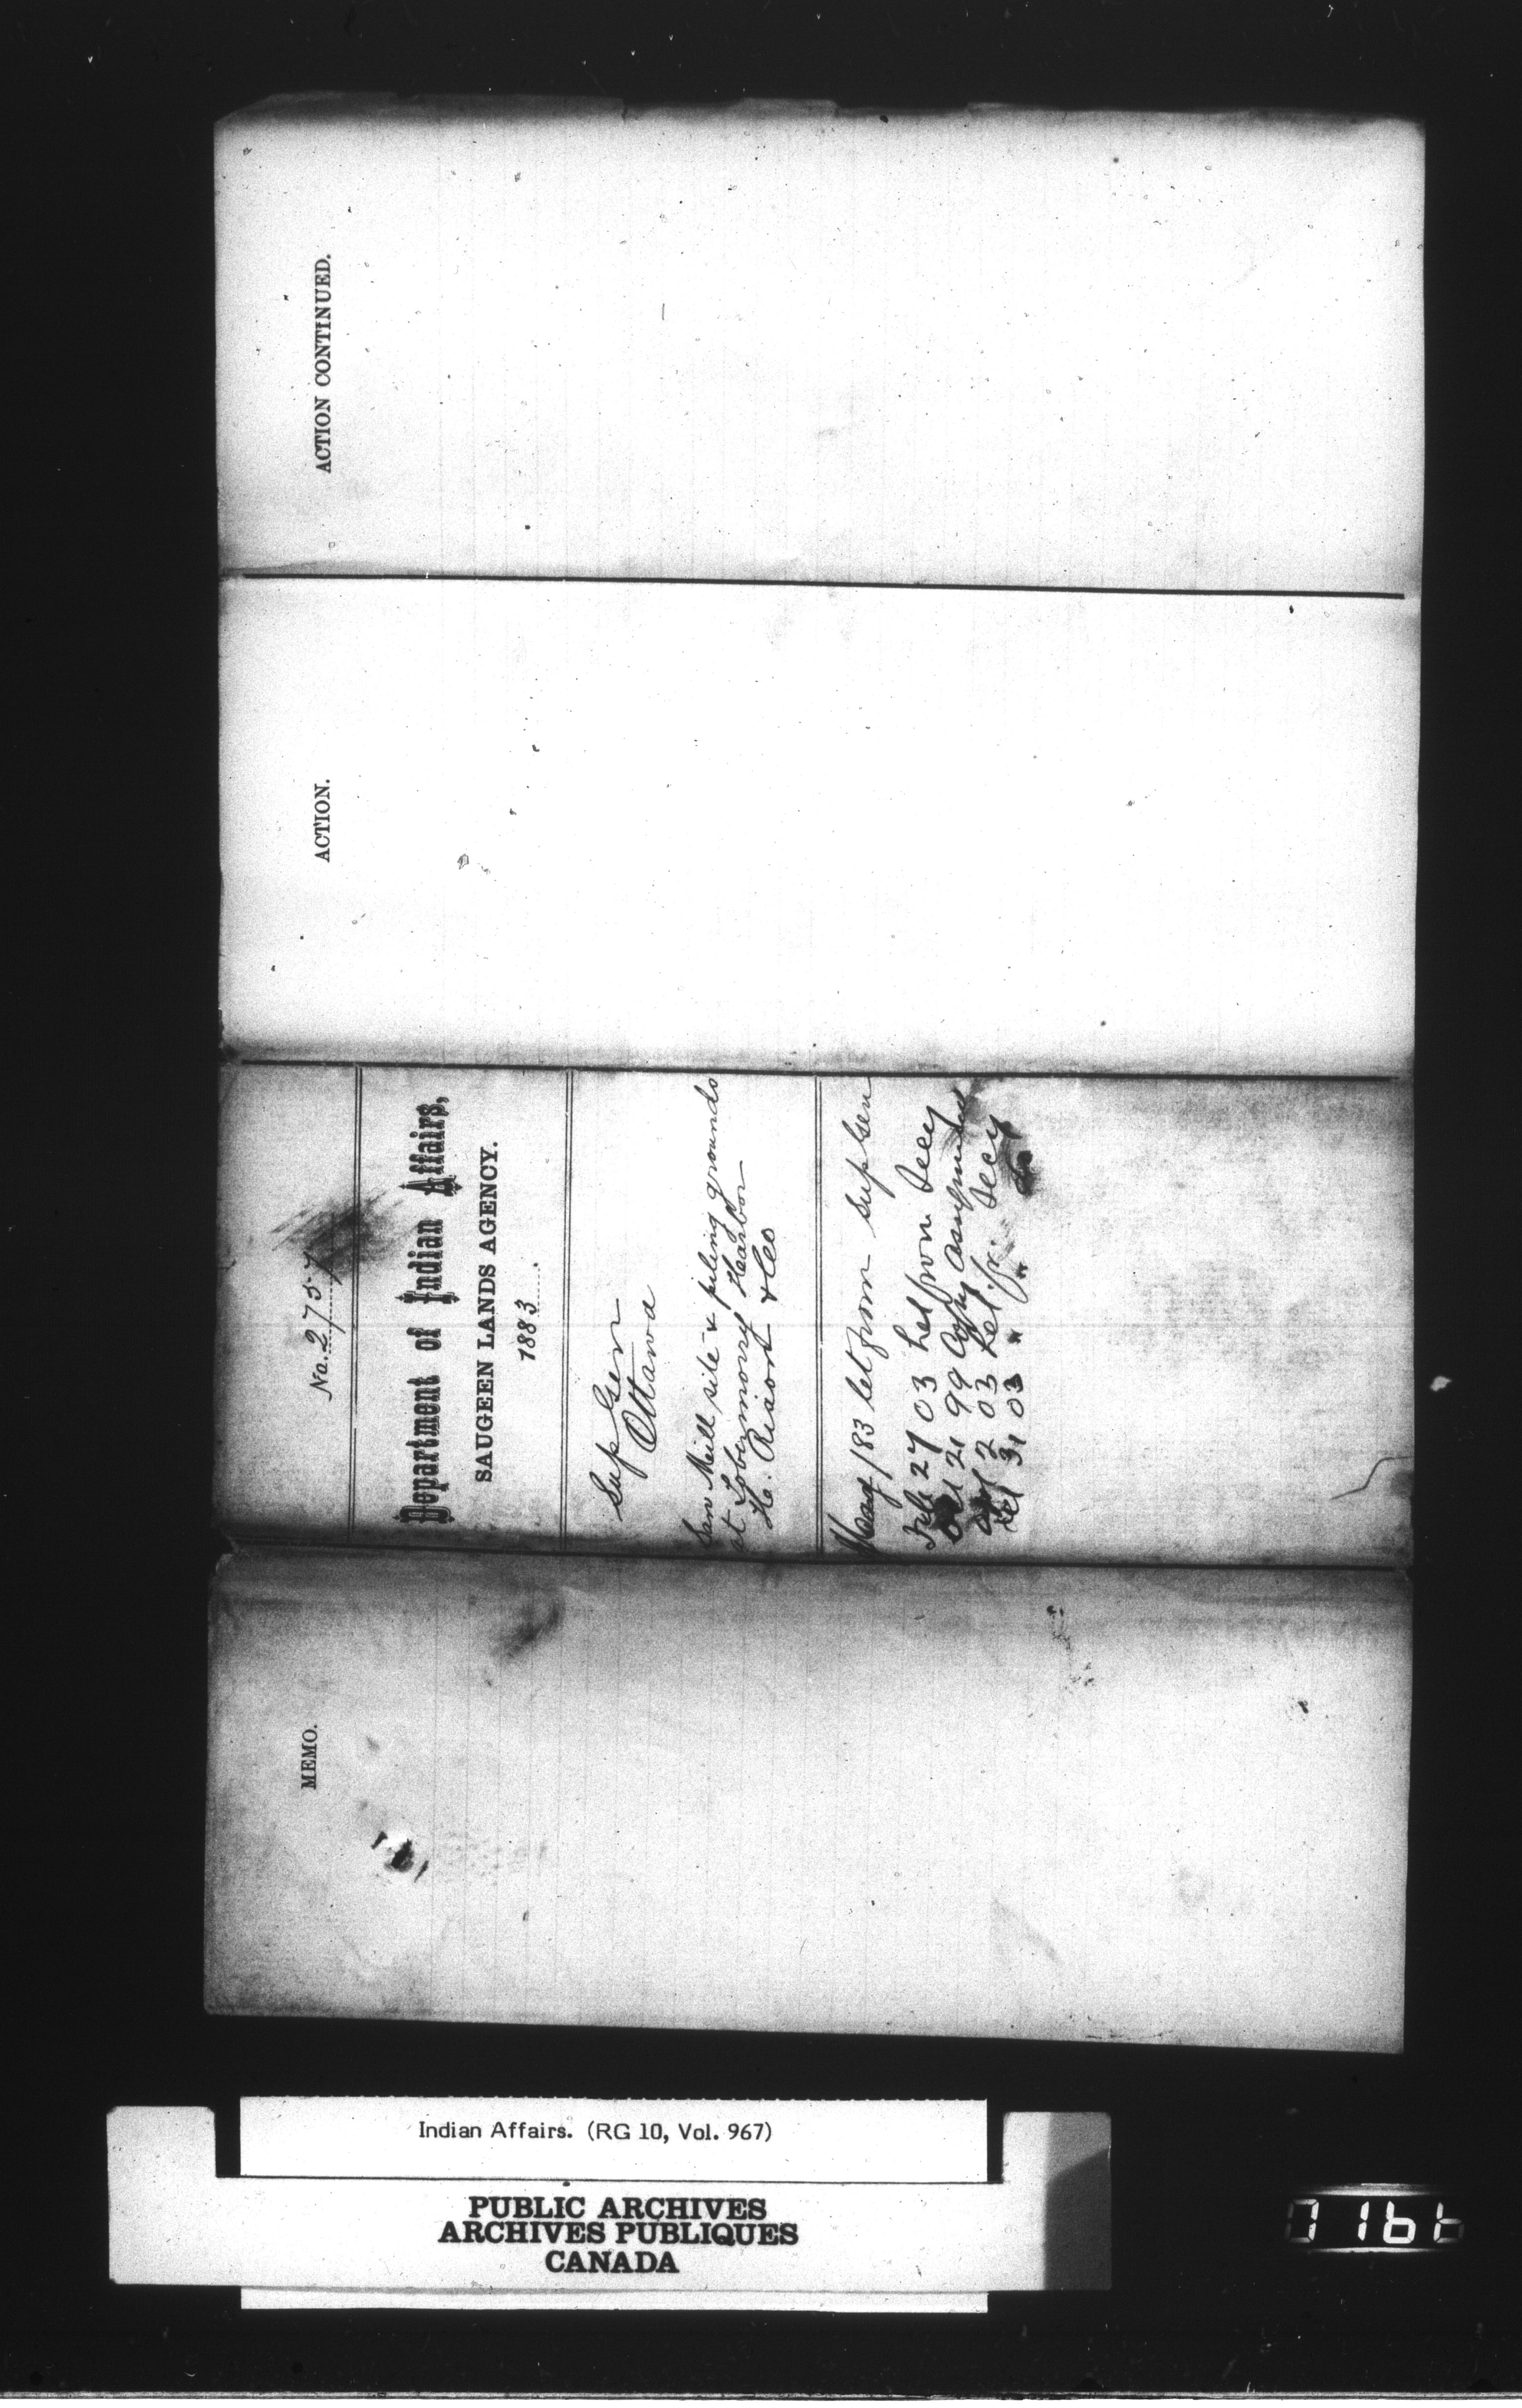 ACTION CONTINUED.
ACTION.
No. 2757
Department of Indian Affairs,
SAUGEEN LANDS AGENCY.
1883.
Sup Gen
Ottawa
Saw Mill site & piling grounds
at Tobermory Harbor
& Co
83 Let from Sup Gen
Feb 27 03 Let from Secy
21 99 Copy Assignment
2 03 Let fr. Secy
31 03 " "
MEMO.
Indian Affairs. (RG 10, Vol. 967)
PUBLIC ARCHIVES
ARCHIVES PUBLIQUES
CANADA